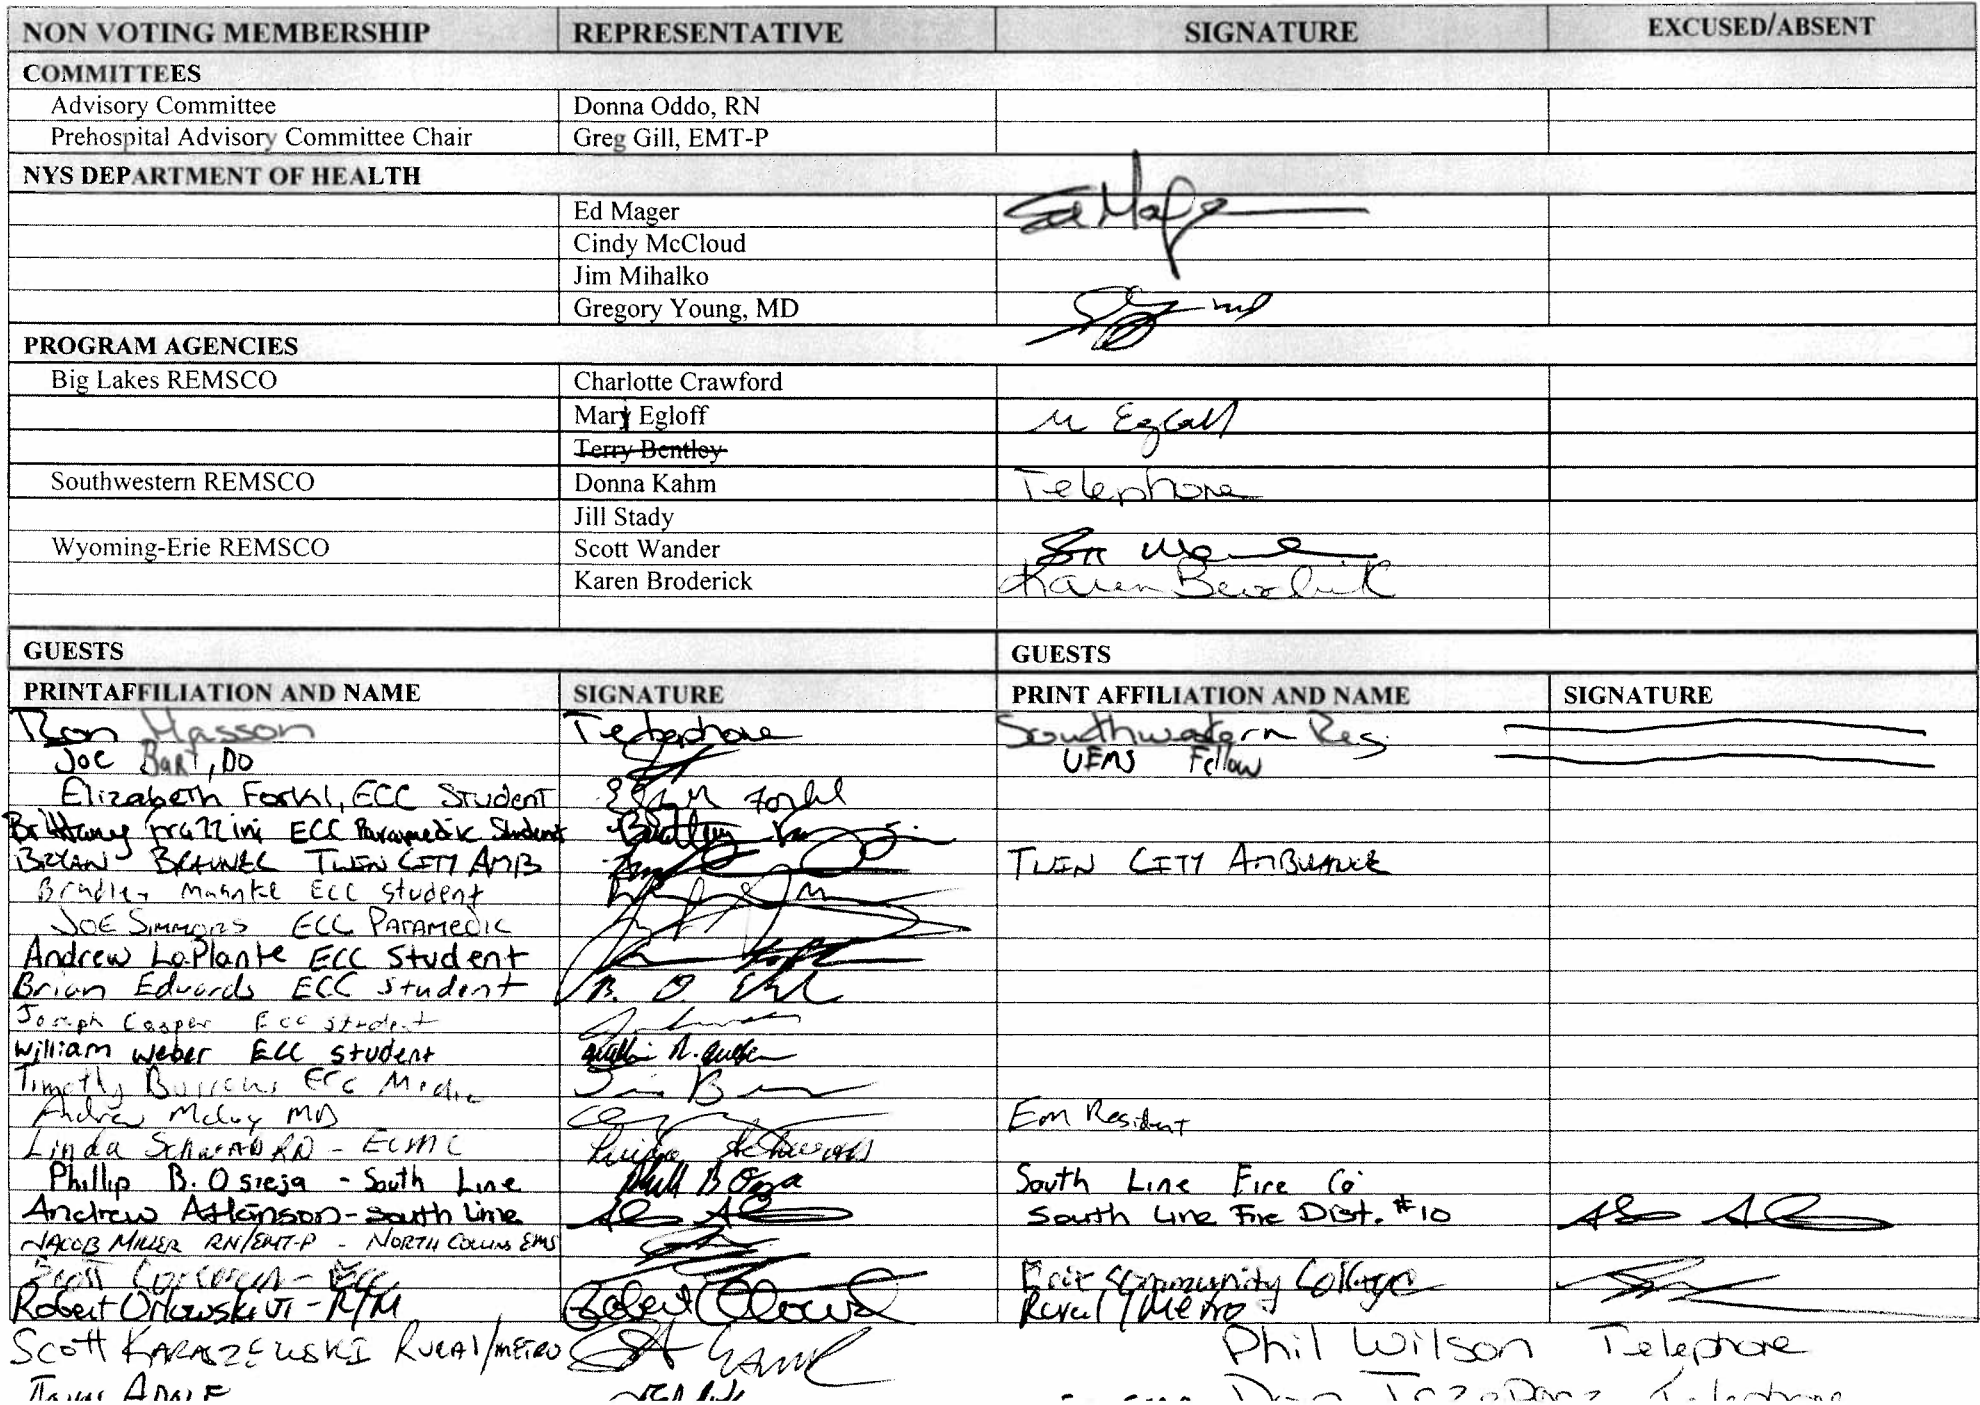 NON VOTING MEMBERSHIP REPRESENTATIVE SIGNATURE EXCUSED/ABSENT
COMMITTEES
Advisory Committee Donna Oddo, RN
Prehospital Advisory Committee Chair Greg Gill, EMT-P
NYS DEPARTMENT OF HEALTH
Ed Mager Ed Mager
Cindy McCloud
Jim Mihalko
Gregory Young, MD
PROGRAM AGENCIES
Big Lakes REMSCO Charlotte Crawford
Mary Egloff M Egloff
Terry Bentley
Southwestern REMSCO Donna Kahm Telephone
Jill Stady
Wyoming-Erie REMSCO Scott Wander
Karen Broderick Karen Broderick
GUESTS GUESTS
PRINTAFFILIATION AND NAME SIGNATURE PRINT AFFILIATION AND NAME SIGNATURE
Ron Hasson Telephone Southwestern Reg.
Joe Bart, DO UEMS Fellow
Elizabeth Forkl, ECC Student
Brittany Frazzini ECC Paramedic Student
BRYAN BRAUNEL TWIN CITY AMB TWIN CITY AMBULANCE
Bradley Mahnke ECC student
JOE SIMMONS ECC PARAMEDIC
Andrew LaPlante ECC Student
Brian Edwards ECC student
Joseph Casper ECC student
William Weber ECC student
Timothy Burrows ECC Medic
Andrew McCoy MD Em Resident
Linda Schwab RN - ECMC
Phillip B. Osieja - South Line South Line Fire Co
Andrew Atkinson - South Line South Line Fire Dist. #10
JACOB MILLER RN/EMT-P - NORTH COLLINS EMS
Scott - ECC Erie Community College
Robert Orlowski VI - R/M Rural/Metro
Scott KARASZEWSKI RURAL/METRO Phil Wilson Telephone
Telephone